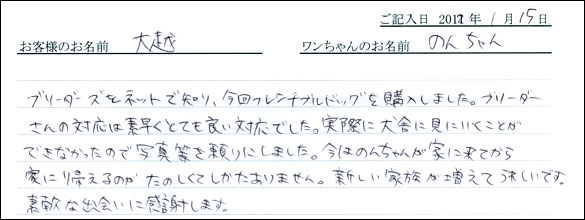 ご記入日 2012年1月15日
お客様のお名前 大越 ワンちゃんのお名前 のんちゃん
ブリーダーズをネットで知り、今回フレンチブルドッグを購入しました。ブリーダー
さんの対応は素早くとても良い対応でした。実際に犬舎に見にいくことが
できなかったので写真等を頼りにしました。今はのんちゃんが家に来てから
家に帰えるのがたのしくてしかたありません。新しい家族が増えてうれしいです。
素敵な出会いに感謝します。